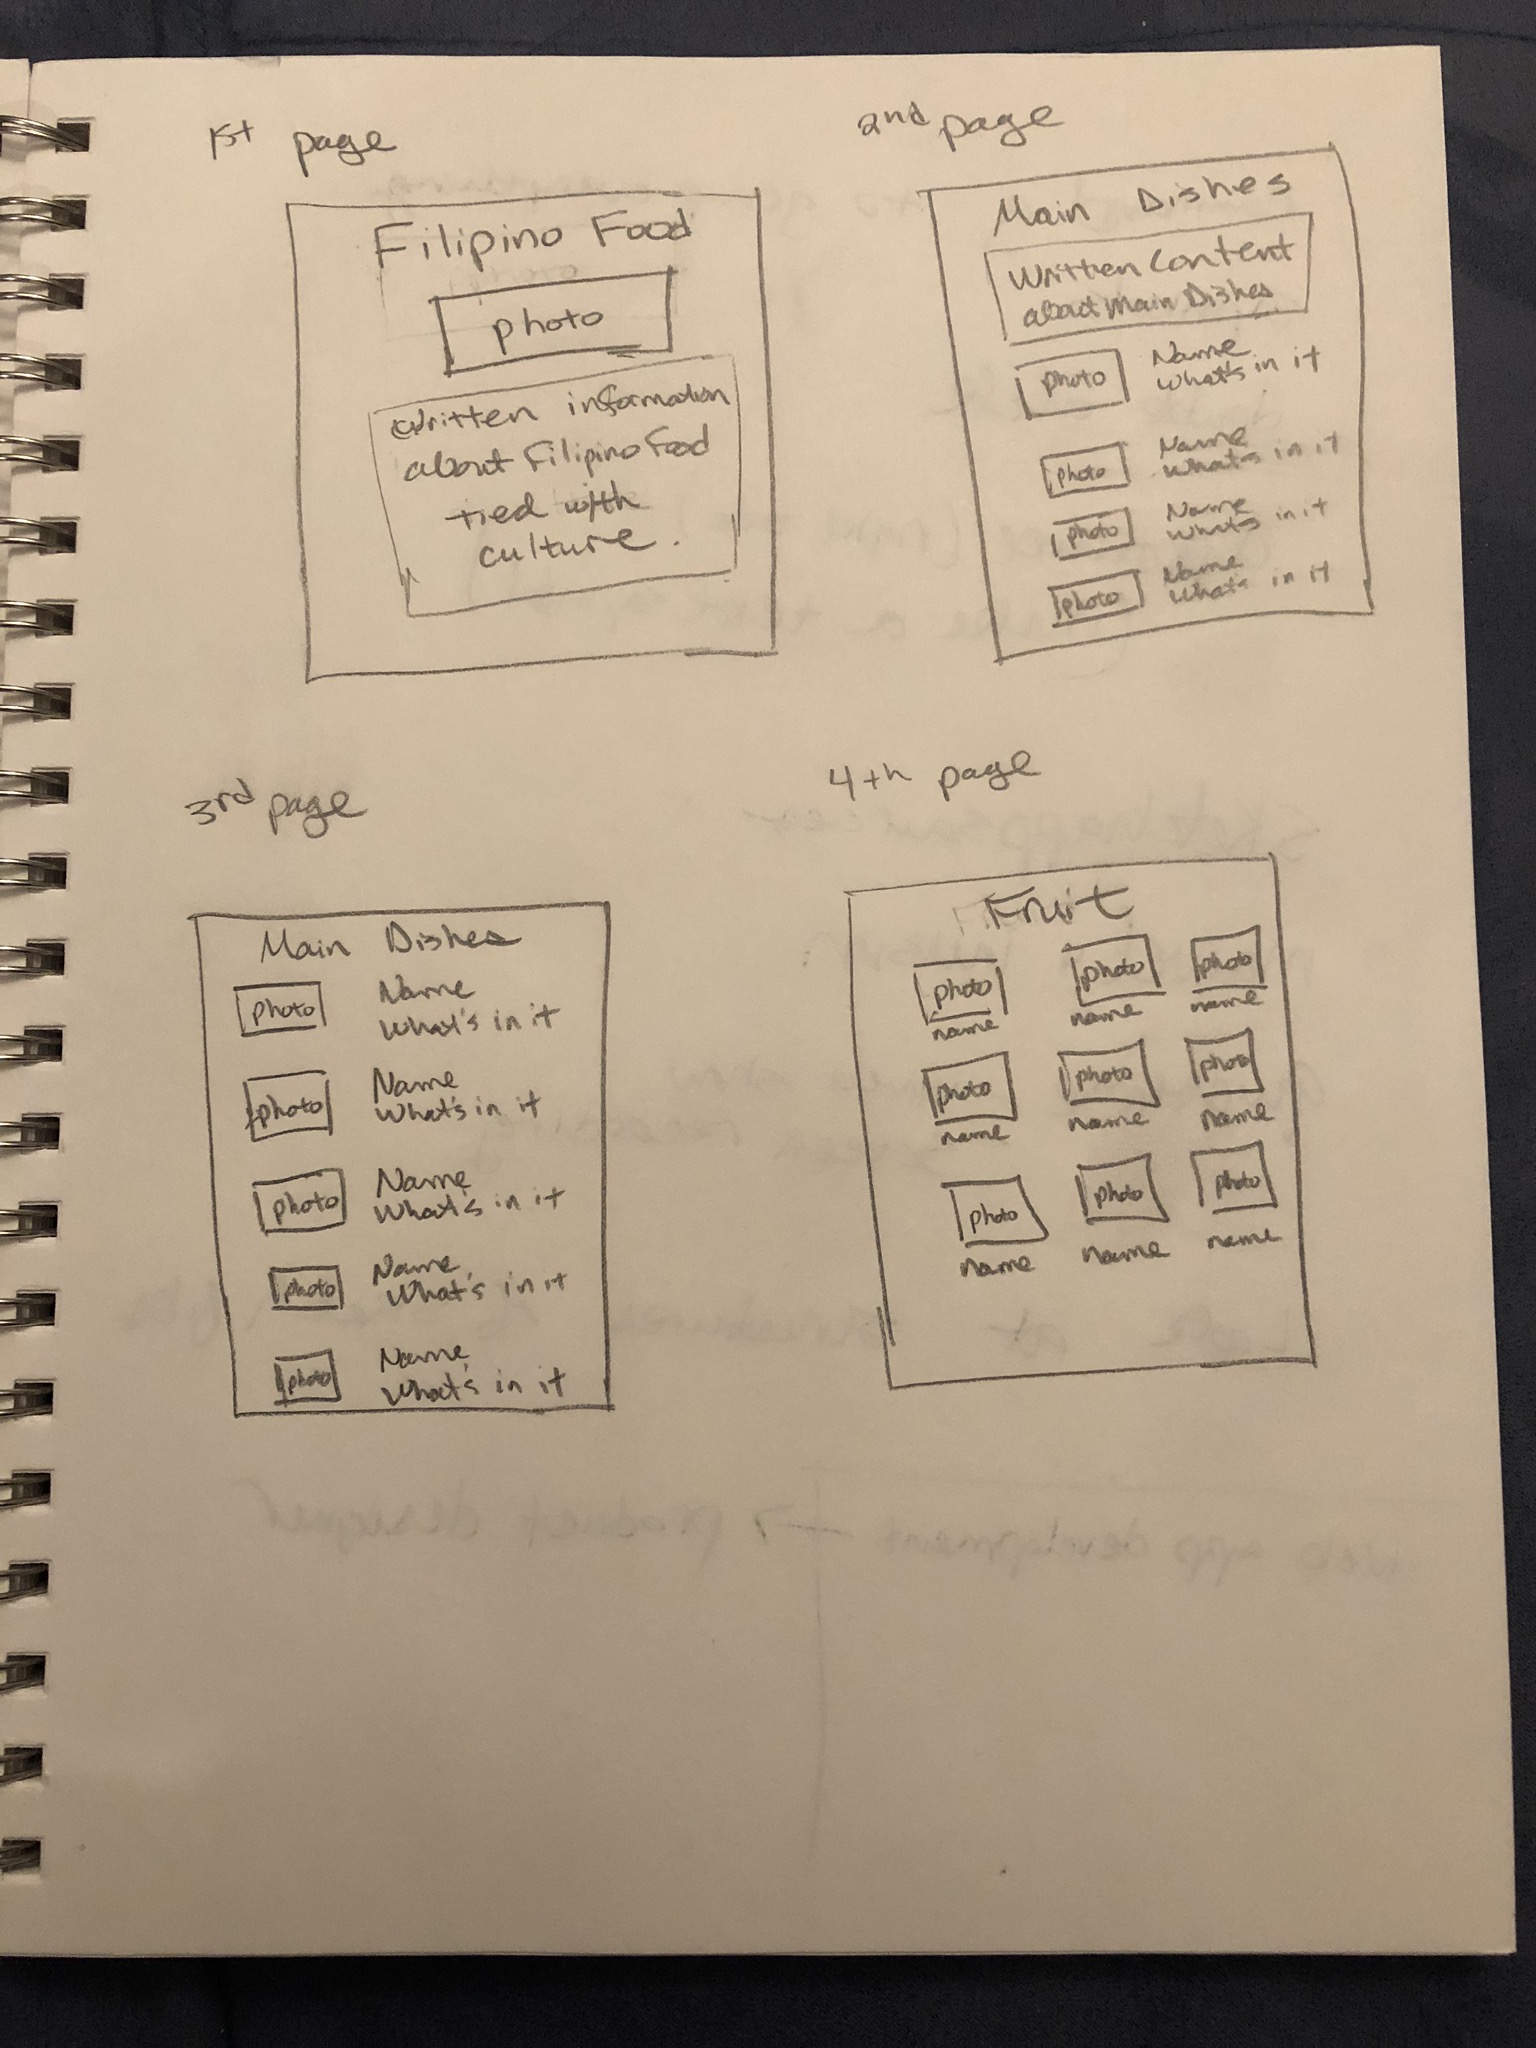 1st page
Filipino Food
photo
written information
about Filipino Food
tied with
culture.
2nd page
Main Dishes
Written Content
about Main Dishes
photo
Name
What's in it
photo
Name
What's in it
photo
Name
What's in it
photo
Name
What's in it
3rd page
Main Dishes
photo
Name
What's in it
photo
Name
What's in it
photo
Name
What's in it
photo
Name
What's in it
photo
Name
What's in it
4th page
Fruit
photo photo photo
name name name
photo photo photo
name name name
photo photo photo
name name name
web app development → product designer